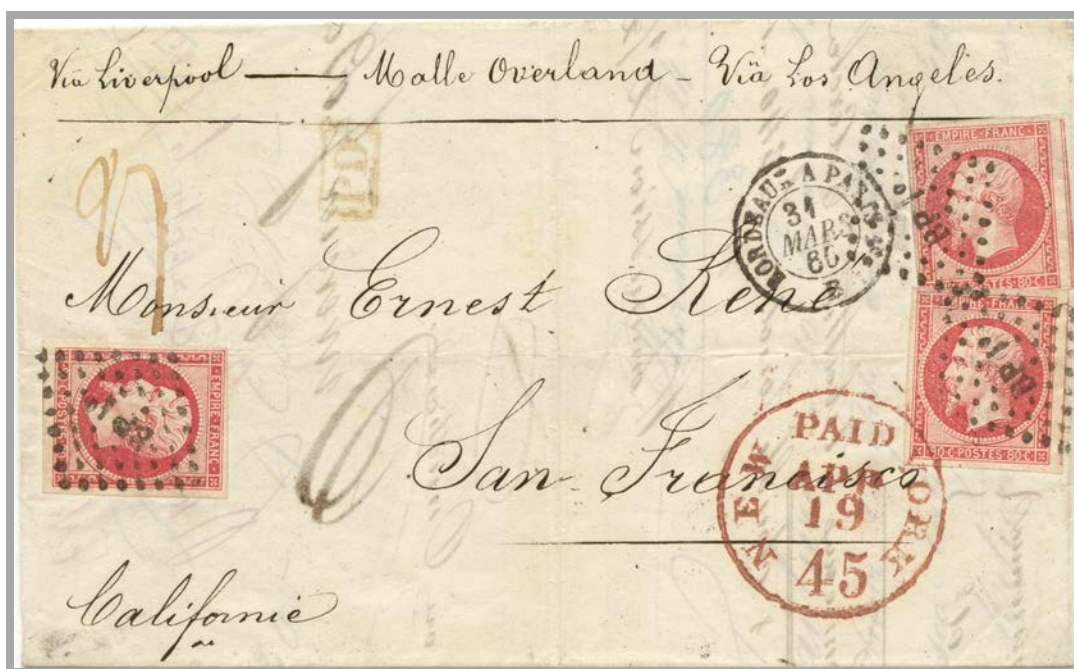 Via Liverpool — Malle Overland - Via Los Angeles.
PD
BORDEAUX A PARIS
31
MARS
60
EMPIRE·FRANC·
BP
POSTES·80·C·
EMPIRE·FRANC·
BP
80·C·POSTES·80·C·
Monsieur Ernest René
EMPIRE·FRANC·
San Francisco
NEW YORK
PAID
APR
19
45
Californie